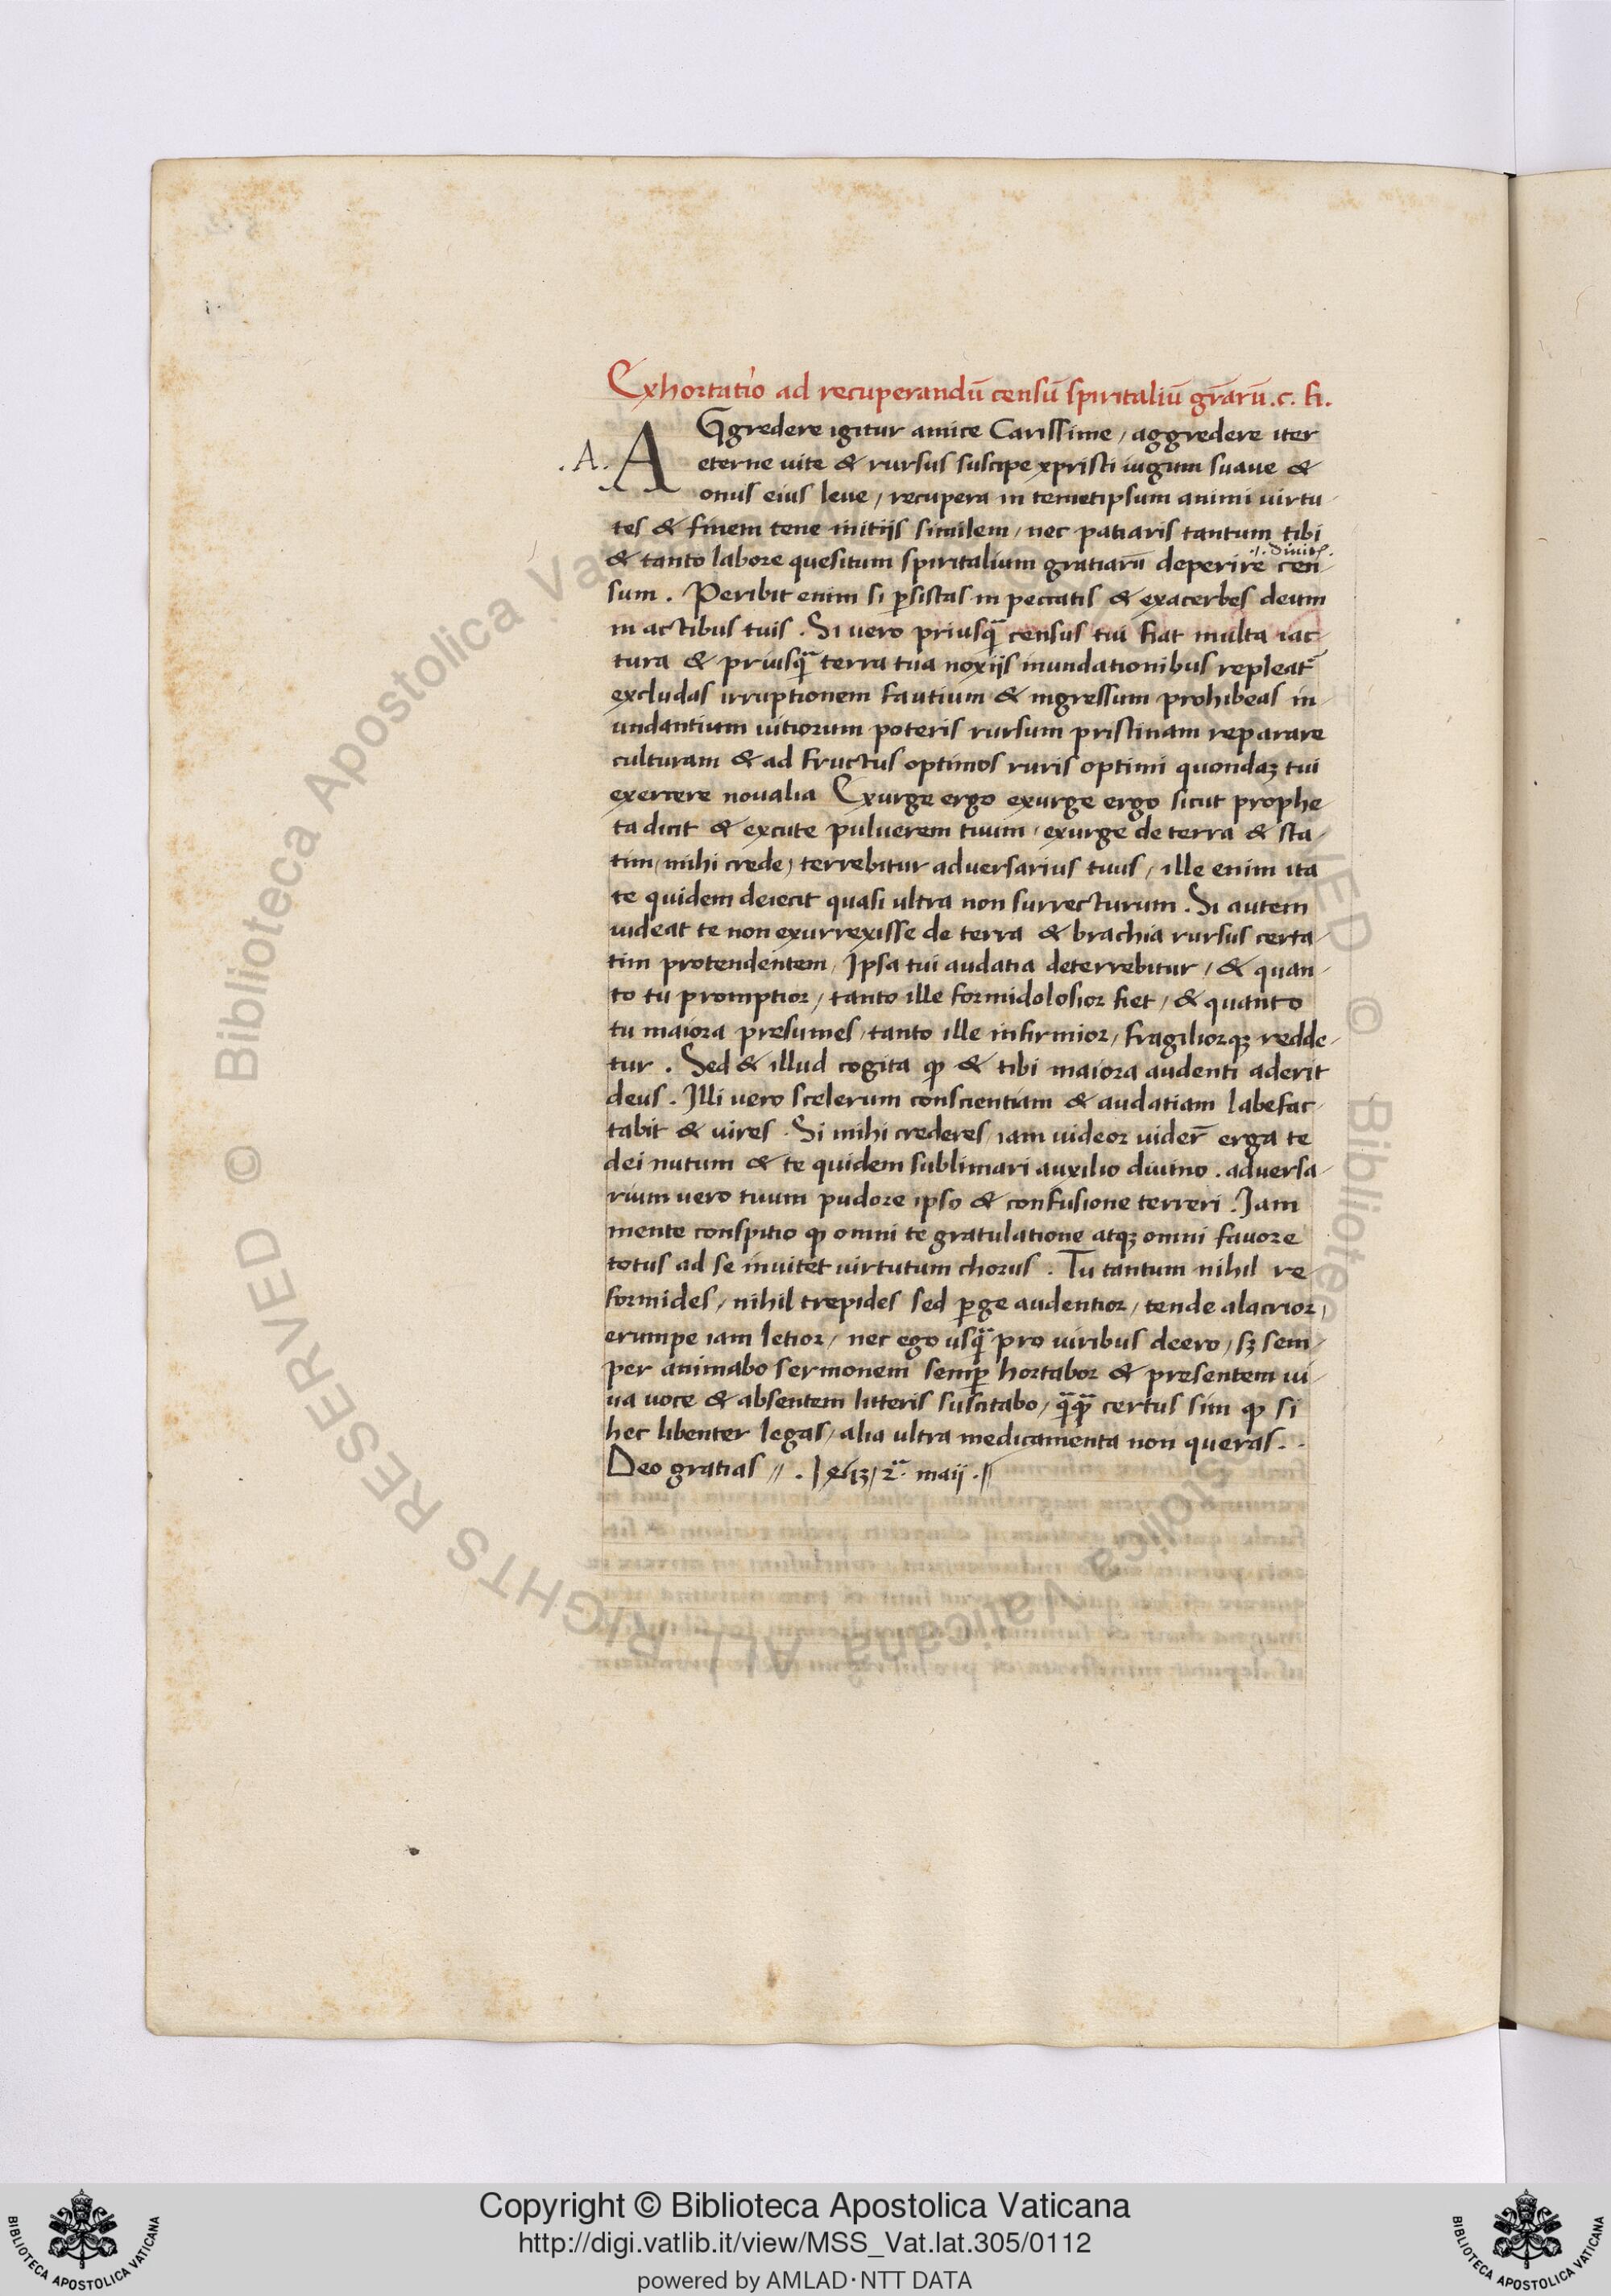 Exhortatio ad recuperandū censū spiritaliū gr̄arū. c. fi.
.A. AGgredere igitur amice Carissime, aggredere iter
eterne uite & rursus suscipe xpristi iugum suaue &
onus eius leue, recupera in temetipsum animi uirtu-
tes & finem tene initijs similem, nec patiaris tantum tibi
.i. diuit
& tanto labore quesitum spiritalium gratiarū deperire cen-
sum. Peribit enim si ꝑsistas in peccatis & exacerbes deum
in actibus tuis. Si uero priusq̄ census tui fiat multa iac-
tura & priusq̄ terra tua noxijs inundationibus repleat̄
excludas irruptionem fautium & ingressum prohibeas in-
undantium uitiorum poteris rursum pristinam reparare
culturam & ad fructus optimos ruris optimi quondaꝫ tui
exercere noualia Exurge ergo exurge ergo sicut prophe-
ta dicit & excute puluerem tuum, exurge de terra & sta-
tim, mihi crede, terrebitur aduersarius tuus, ille enim ita
te quidem deiecit quasi ultra non surrecturum. Si autem
uideat te non exurrexisse de terra & brachia rursus certa-
tim protendentem, Ipsa tui audatia deterrebitur, & quan-
to tu promptior, tanto ille formidolosior fiet, & quanto
tu maiora presumes, tanto ille infirmior, fragiliorqꝫ redde-
tur. Sed & illud cogita ꝙ & tibi maiora audenti aderit
deus. Illi uero scelerum conscientiam & audatiam labefac-
tabit & uires. Si mihi crederes, iam uideor uider̄ erga te
dei nutum & te quidem sublimari auxilio diuino. aduersa-
rium uero tuum pudore ipso & confusione terreri. Iam
mente conspitio ꝙ omni te gratulatione atqꝫ omni fauore
totus ad se inuitet uirtutum chorus. Tu tantum nihil re-
formides, nihil trepides sed ꝑge audentior, tende alacrior,
erumpe iam letior, nec ego usq̄ pro uiribus deero, sꝫ sem-
per animabo sermonem semꝑ hortabor & presentem ui-
ua uoce & absentem litteris suscitabo, q̄q̄ certus sim ꝙ si
hec libenter legas, alia ultra medicamenta non queras..
Deo gratias //. maij.
Copyright © Biblioteca Apostolica Vaticana
http://digi.vatlib.it/view/MSS_Vat.lat.305/0112
powered by AMLAD·NTT DATA
BIBLIOTECA APOSTOLICA VATICANA
BIBLIOTECA APOSTOLICA VATICANA
© Biblioteca Apostolica Vaticana ALL RIGHTS RESERVED